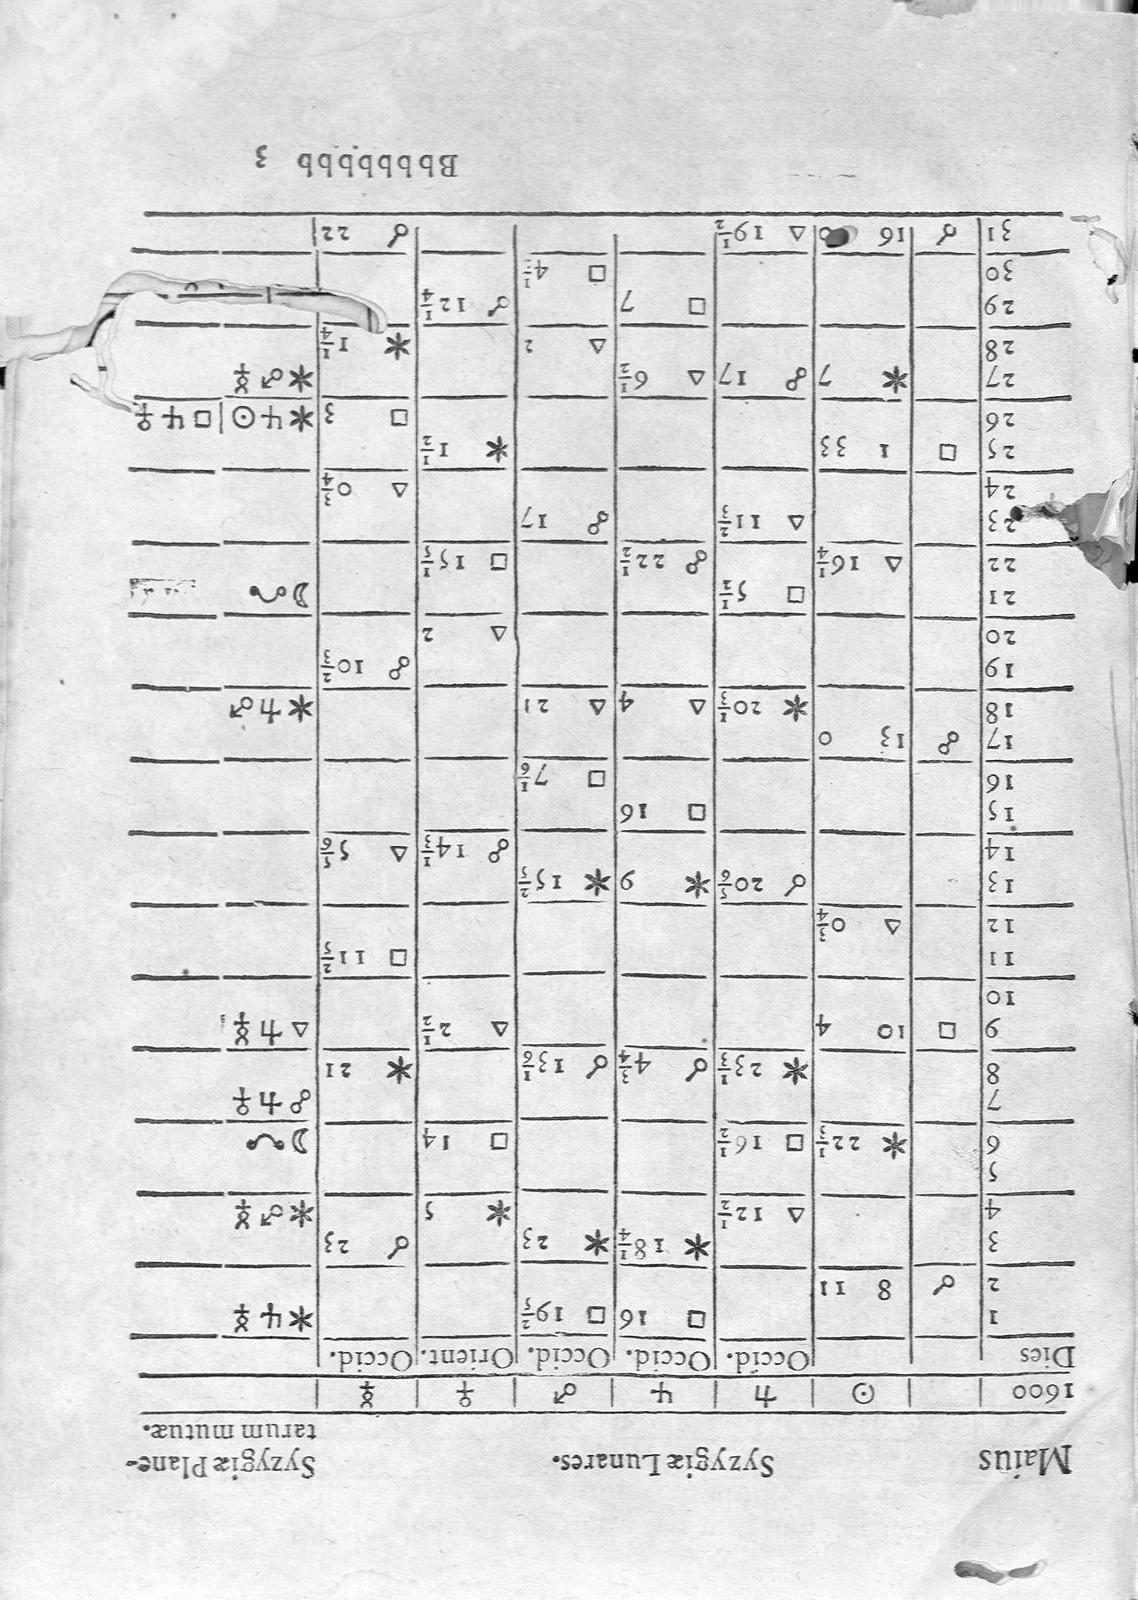 Maius Syzygiæ Lunares. Syzygiæ Plane-
tarum mutuæ.
1600 ☉ ♄ ♃ ♂ ♀ ☿
Dies Occid. Occid. Occid. Orient. Occid.
1 □ 16 □ 19 2/5 ⚹ ♃ ☿
2 ☌ 8 11
3 ⚹ 18 1/4 ⚹ 23 ☌ 23
4 △ 12 1/2 ⚹ 5 ⚹ ♂ ☿
5
6 ⚹ 22 1/3 □ 16 1/2 □ 14 ☽ ☋
7 ☍ ♄ ♀
8 ⚹ 23 1/3 ☌ 4 3/4 ☌ 13 1/6 ⚹ 21
9 □ 10 4 △ 2 1/2 △ ♄ ☿
10
11 □ 11 2/5
12 △ 0 3/4
13 ☌ 20 5/6 ⚹ 9 ⚹ 15 2/5
14 ☍ 14 1/3 △ 5 5/6
15 □ 16
16 □ 7 1/6
17 ☍ 13 0
18 ⚹ 20 1/3 △ 4 △ 21 ⚹ ♄ ♂
19 ☍ 10 2/3
20 △ 2
21 □ 5 1/2 ☽ ☋
22 △ 16 1/4 ☍ 22 1/2 □ 15 1/5
23 △ 11 2/3 ☍ 17
24 △ 0 3/4
25 □ 1 33 ⚹ 1 1/2
26 □ 3 ⚹ ♃ ☉ □ ♃ ♀
27 ⚹ 7 ☍ 17 △ 6 1/2 ⚹ ♂ ☿
28 △ 2 ⚹ 1 1/4
29 □ 7 ☌ 12 1/4
30 □ 4
31 ☌ 16 0 △ 19 1/2 ☌ 22
Bbbbbbbb 3